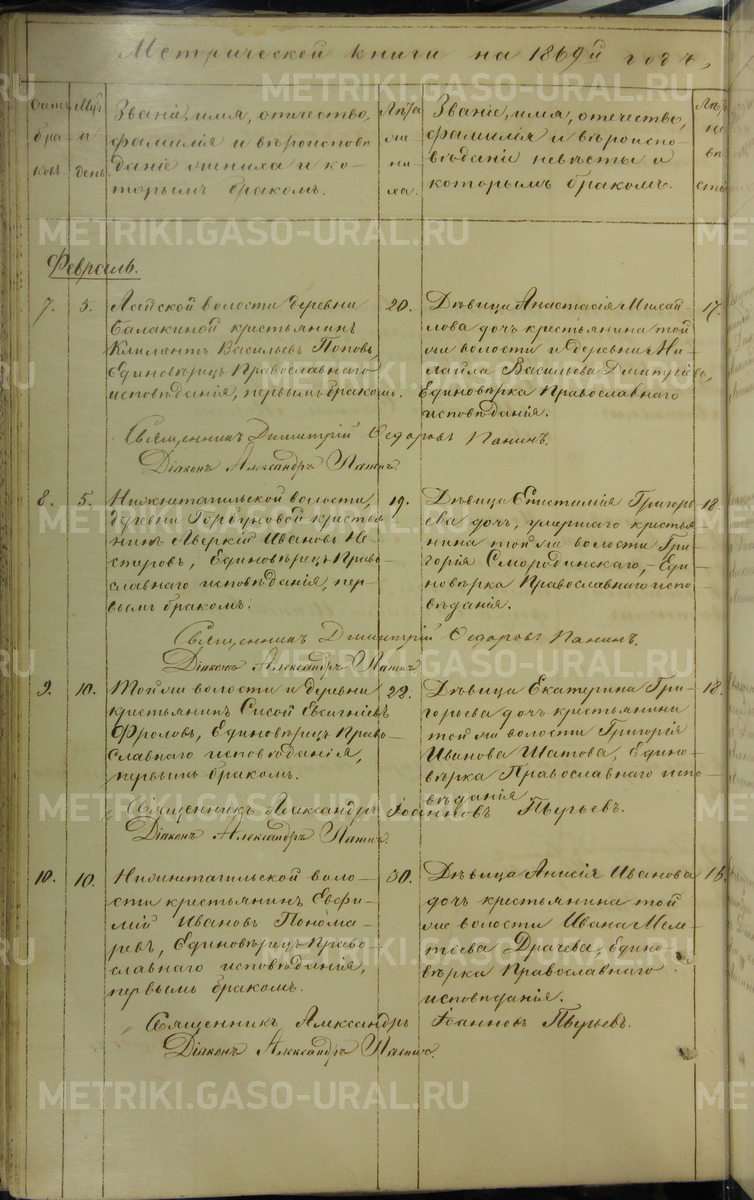 Метрической книги на 1869й годъ,
Счетъ бра ковъ.
Мѣс. и день.
Званіе, имя, отчество,
фамилія и вѣроисповѣ
даніе жениха и ко-
торымъ бракомъ.
Лѣта же ни ха.
Званіе, имя, отчество,
фамилія и вѣроиспо-
вѣданіе невѣсты и
которымъ бракомъ.
Лѣт не вѣ сты
Февраль.
7. 5.
волости деревни
Балакиной крестьянинъ
Климентъ Васильевъ Поповъ,
Единовѣрецъ Православнаго
исповѣданія, первымъ бракомъ.
20.
Дѣвица Анастасія Михай-
лова дочь крестьянина той
же волости и деревни Ми-
хайла Васильева
Единовѣрка Православнаго
исповѣданія.
17.
Священникъ Димитрій Ѳедоровъ Панинъ.
Діаконъ Александръ
8. 5.
Нижнетагильской волости,
деревни Горбуновой крестья
нинъ Аверкій Ивановъ Не-
стеровъ, Единовѣрецъ Право-
славнаго исповѣданія, пер-
вымъ бракомъ.
19.
Дѣвица Епистимія Григорь
ева дочь, умершаго крестья
нина той же волости Гри-
горія Смородинскаго, Еди-
новѣрка Православнаго испо-
вѣданія.
18.
Священникъ Димитрій Ѳедоровъ Панинъ.
Діаконъ Александръ
9. 10.
Той же волости и деревни
крестьянинъ Сисой Евсигнѣевъ
Фроловъ, Единовѣрецъ Право-
славнаго исповѣданія,
первымъ бракомъ.
22.
Дѣвица Екатерина Гри-
горьева дочь крестьянина
той же волости Григорія
Иванова Шатова, Едино-
вѣрка Православнаго испо-
вѣданія
18.
Священникъ Александръ Іоанновъ
Діаконъ Александръ
10. 10.
Нижнетагильской воло-
сти крестьянинъ Евфи-
мій Ивановъ Понома-
ревъ, Единовѣрецъ Право-
славнаго исповѣданія,
первымъ бракомъ.
30.
Дѣвица Анисія Иванова
дочь крестьянина той
же волости Ивана
Драчева, Едино-
вѣрка Православнаго
исповѣданія.
Священникъ Александръ Іоанновъ
Діаконъ Александръ
METRIKI.GASO-URAL.RU